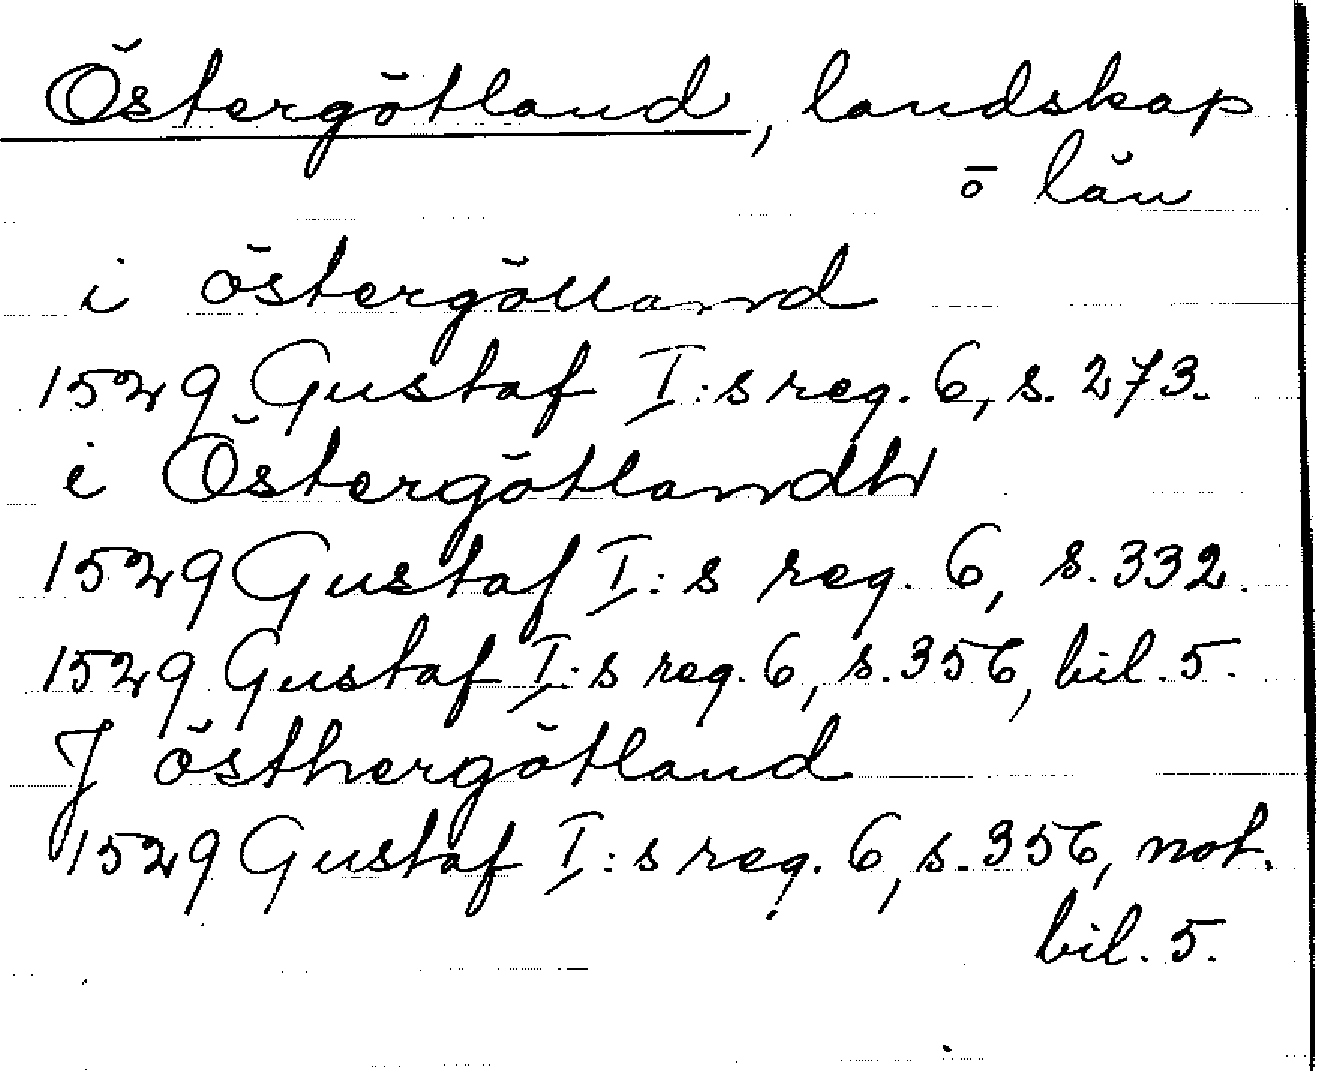 Östergötland, landskap
o län
i östergölland
1529 Gustaf I:s reg. 6, s. 273.
i Östergötlandh
1529 Gustaf I:s reg. 6, s. 332.
1529 Gustaf I:s reg. 6, s. 356, bil. 5.
J östhergötland
1529 Gustaf I:s reg. 6, s. 356, not.
bil. 5.